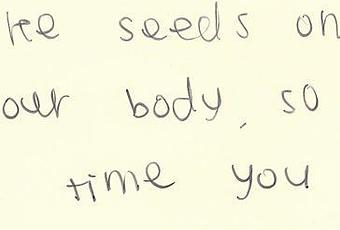 ke seeds on
our body, so
time you